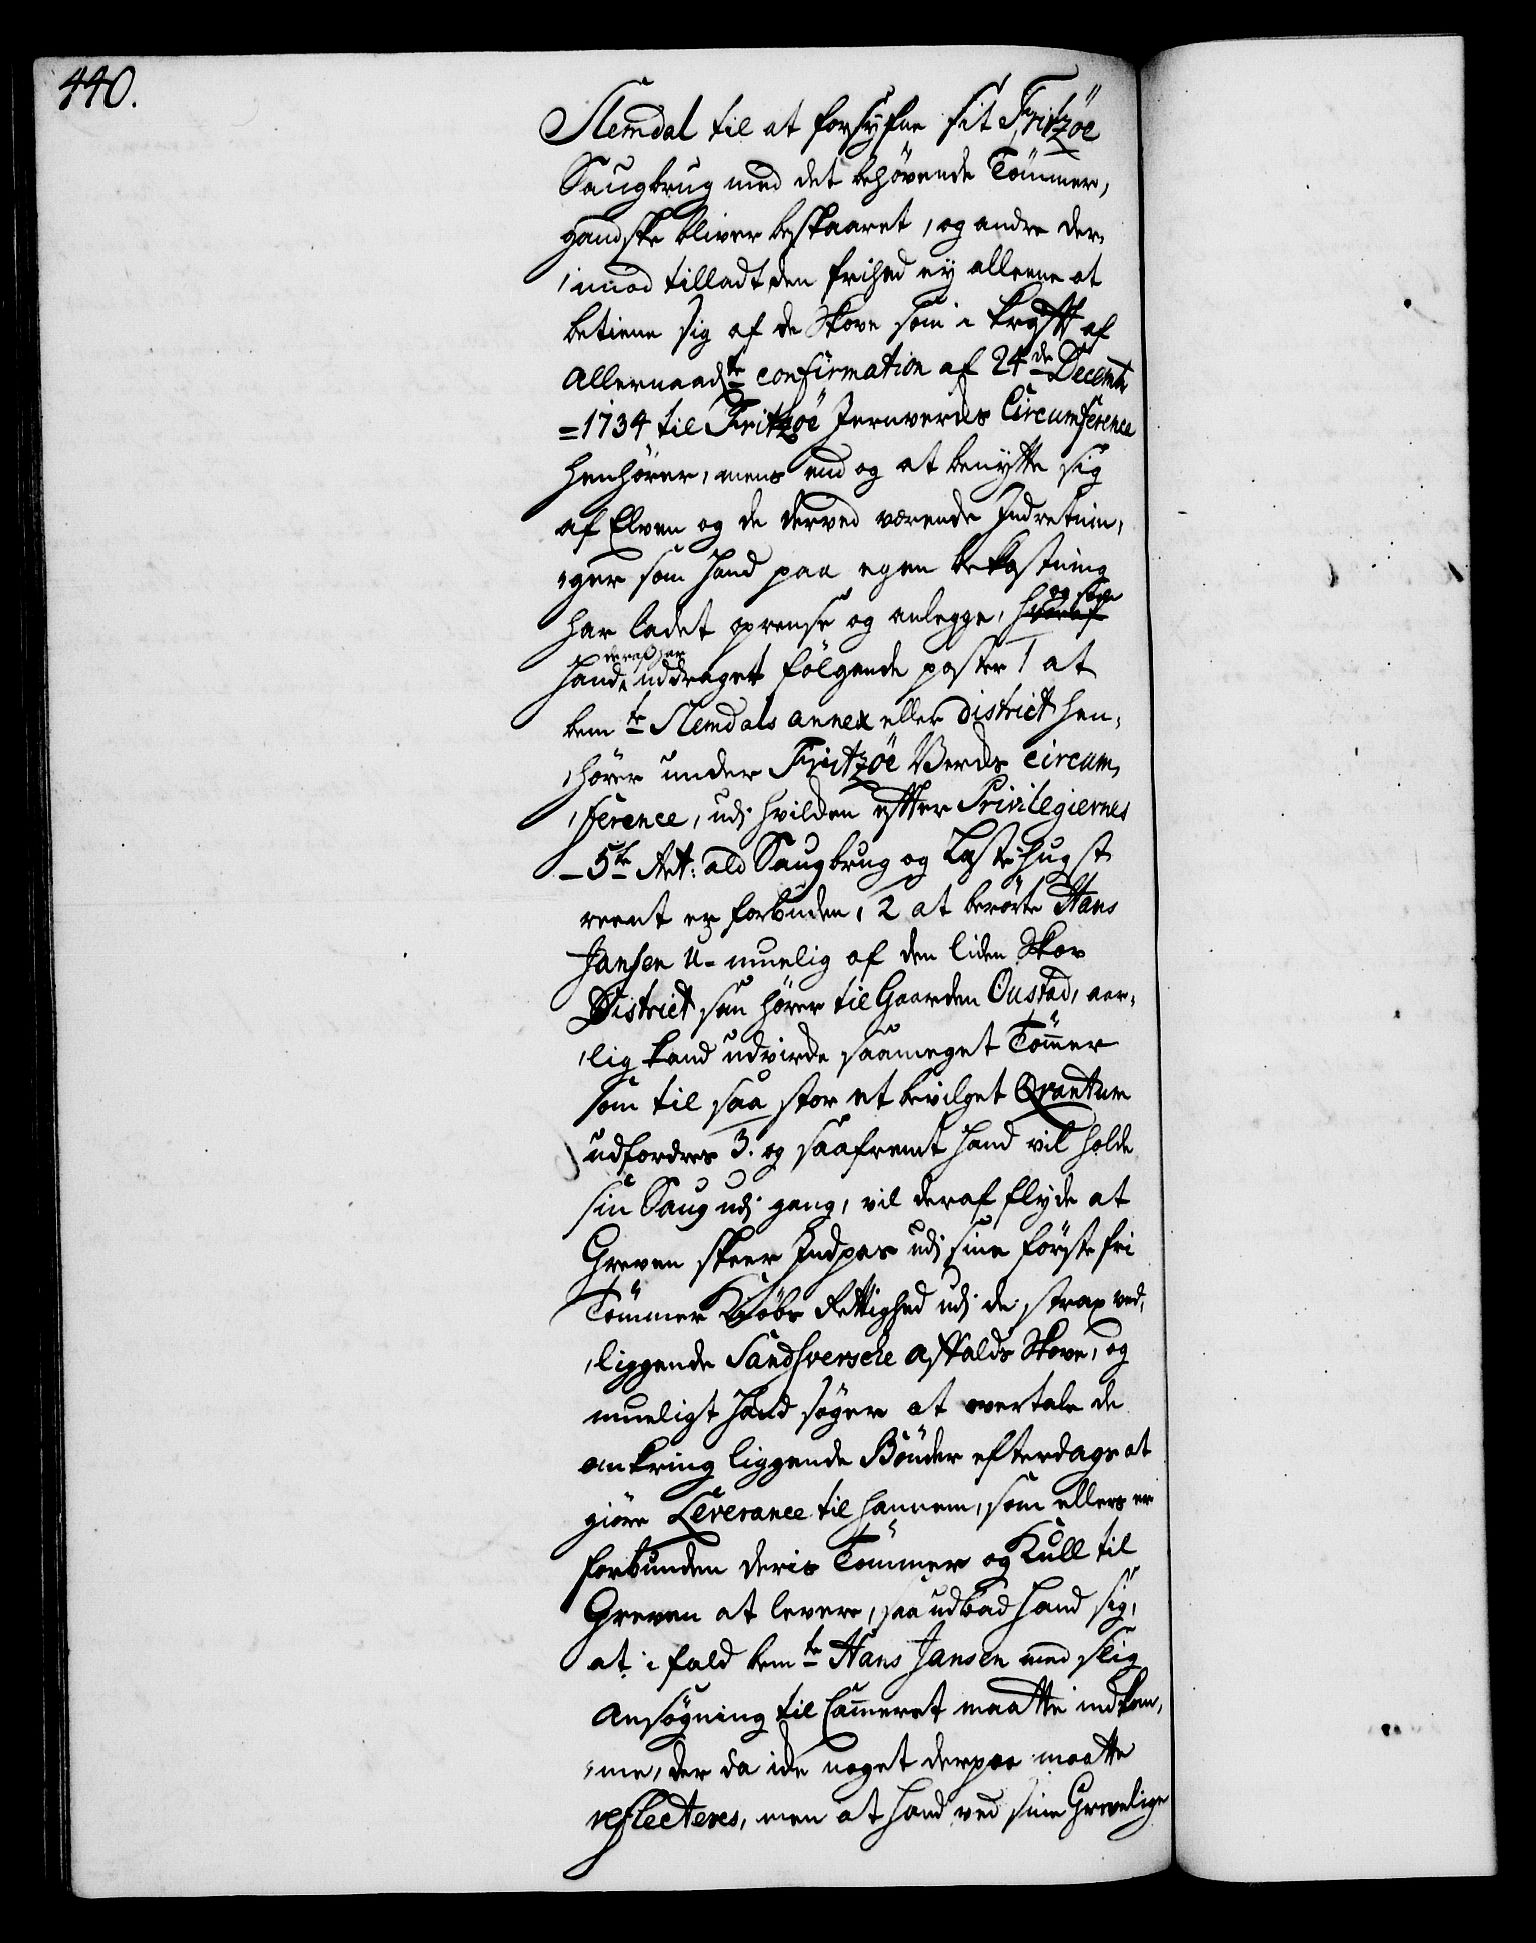 440.
Slemdal til at forsÿfne sit Fritzöe
Saugbrug med det behövende Tömmer,
gandske bliver beskaaret, og andre der-
imod tilladt den frihed eÿ alleene at
betiene sig af de Skove som i krafft af
Allernaadste confirmation af 24de Decembr
1734 til Fritzöe Jernverks Circumference
henhörer, mens end og at benÿtte sig
af Elven og de derved værende Indretnin-
ger som hand paa egen bekostning
har ladet oprense og anlegge, hvoraf og som
hand deraf har uddraget fölgende poster 1 at
bemte Slemdals annex eller district hen-
hörer under Fritzöe Verks circum-
ference, udj hvilken efter Privilegiernes
5te Art: ald Saugbrug og Laste hugst
reent er forbuden, 2 at berörte Hans
Jansen u-muelig af den liden Skov
District som hörer til Gaarden Oustad, aar-
lig kand udvirke saameget Tömer
som til saa stor et bevilget Qvantum
udfordres 3. og saafremt hand vil holde
sin Saug udj gang, vil deraf flÿde at
Greven skeer Indpas udj sine förste fri
Tömmer Kiöbs Rettighed udj de strax ved-
liggende Sandsversche Affalds Skove, og
mueligt hand söger at overtale de
omkring liggende Bönder efterdags at
giöre Leverance til hannem, som ellers er
forbunden deris Tömmer og Kull til
Greven at levere, saa udbad hand sig,
at i fald bemte Hans Jansen med slig
Ansögning til Cammeret maatte indkom-
me, der da icke noget derpaa maatte
reflecteres, men at hand ved sine Grevelige